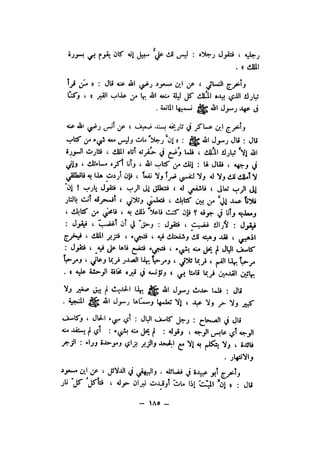 رجليه ، فتقول رجلاه : ليس لك عليَّ سبيل إنه كان يقوم بي بسورة
الملك » .
وأخرج النسائي ، عن ابن مسعود رضي الله عنه قال : « مَن قرأ
تبارك الذي بيده المُلك كل ليلة منعه الله بها من عذاب القبر » ، وكنّا
في عهد رسول الله ﷺ نسميها المانعة .
وأخرج ابن عساكر في تاريخه بسند ضعيف ، عن أنس رضي الله عنه
قال : قال رسول الله ﷺ : « إن رجلاً مات وليس معه شيء من كتاب
الله إلا تبارك المُلك ، فلما وُضع في حُفرته أتاه الملَك ، فثارت السورة
في وجهه ، فقال لها : إنك من كتاب الله ، وأنا أكره مساءتك ، وإني
لا أملك لك ولا له ولا لنفسي ضراً ولا نفعاً ، فإن أردتِ هذا به فانطلقي
إلى الرب تعالى ، فاشفعي له ، فتنطلق إلى الرب ، فتقول يارب ! إن
فلاناً عمد إليَّ من بين كتابك ، فتعلمني وتلاني ، أفمحرقه أنت بالنار
ومعذبه وأنا في جوفه ؟ فإن كنت فاعلاً ذلك به ، فامحني من كتابك ،
فيقول : لأراك غضبتِ ، فتقول : وحق لي أن أغضب ، فيقول :
اذهبي ، فقد وهبته لك وشفعتك فيه ، فتجيء ، فتزبر الملك ، فيخرج
كاسف البال لم يحل منه بشيء ، فتجيء فتضع فاها على فيه ، فتقول :
مرحباً بهذا الفم ، فربما تلاني ، ومرحباً بهذا الصدر فربما وعاني ، ومرحباً
بهاتين القدمين فربما قامتا بي ، وتؤنسه في قبره مخافة الوحشة عليه » .
قال : فلما حدث رسول الله ﷺ بهذا الحديث لم يبق صغير ولا
كبير ولا حر ولا عبد ، إلا تعلمها وسماها رسول الله ﷺ المنجية .
قال في الصحاح : رجل كاسف البال : أي سيء الحال ، وكاسف
الوجه أي عابس الوجه ، وقوله : لم يحل منه بشيء : أي لم يستفد منه
فائدة ، ولا يتكلم به إلا مع الجحد والزبر بزاي وموحدة وراء : الزجر
والانتهار .
وأخرج أبو عبيدة في فضائله ، والبيهقي في الدلائل ، عن ابن مسعود
قال : « إن الميّت إذا مات أوقدت نيران حوله ، فتأكل كل نار
— ١٨٥ —